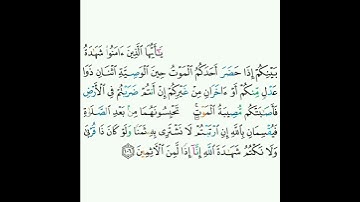 يَٰٓأَيُّهَا ٱلَّذِينَ ءَامَنُوا۟ شَهَٰدَةُ
بَيْنِكُمْ إِذَا حَضَرَ أَحَدَكُمُ ٱلْمَوْتُ حِينَ ٱلْوَصِيَّةِ ٱثْنَانِ ذَوَا
عَدْلٍ مِّنكُمْ أَوْ ءَاخَرَانِ مِنْ غَيْرِكُمْ إِنْ أَنتُمْ ضَرَبْتُمْ فِى ٱلْأَرْضِ
فَأَصَٰبَتْكُم مُّصِيبَةُ ٱلْمَوْتِ ۚ تَحْبِسُونَهُمَا مِنۢ بَعْدِ ٱلصَّلَوٰةِ
فَيُقْسِمَانِ بِٱللَّهِ إِنِ ٱرْتَبْتُمْ لَا نَشْتَرِى بِهِۦ ثَمَنًا وَلَوْ كَانَ ذَا قُرْبَىٰ ۙ
وَلَا نَكْتُمُ شَهَٰدَةَ ٱللَّهِ إِنَّآ إِذًا لَّمِنَ ٱلْءَاثِمِينَ ١٠٦